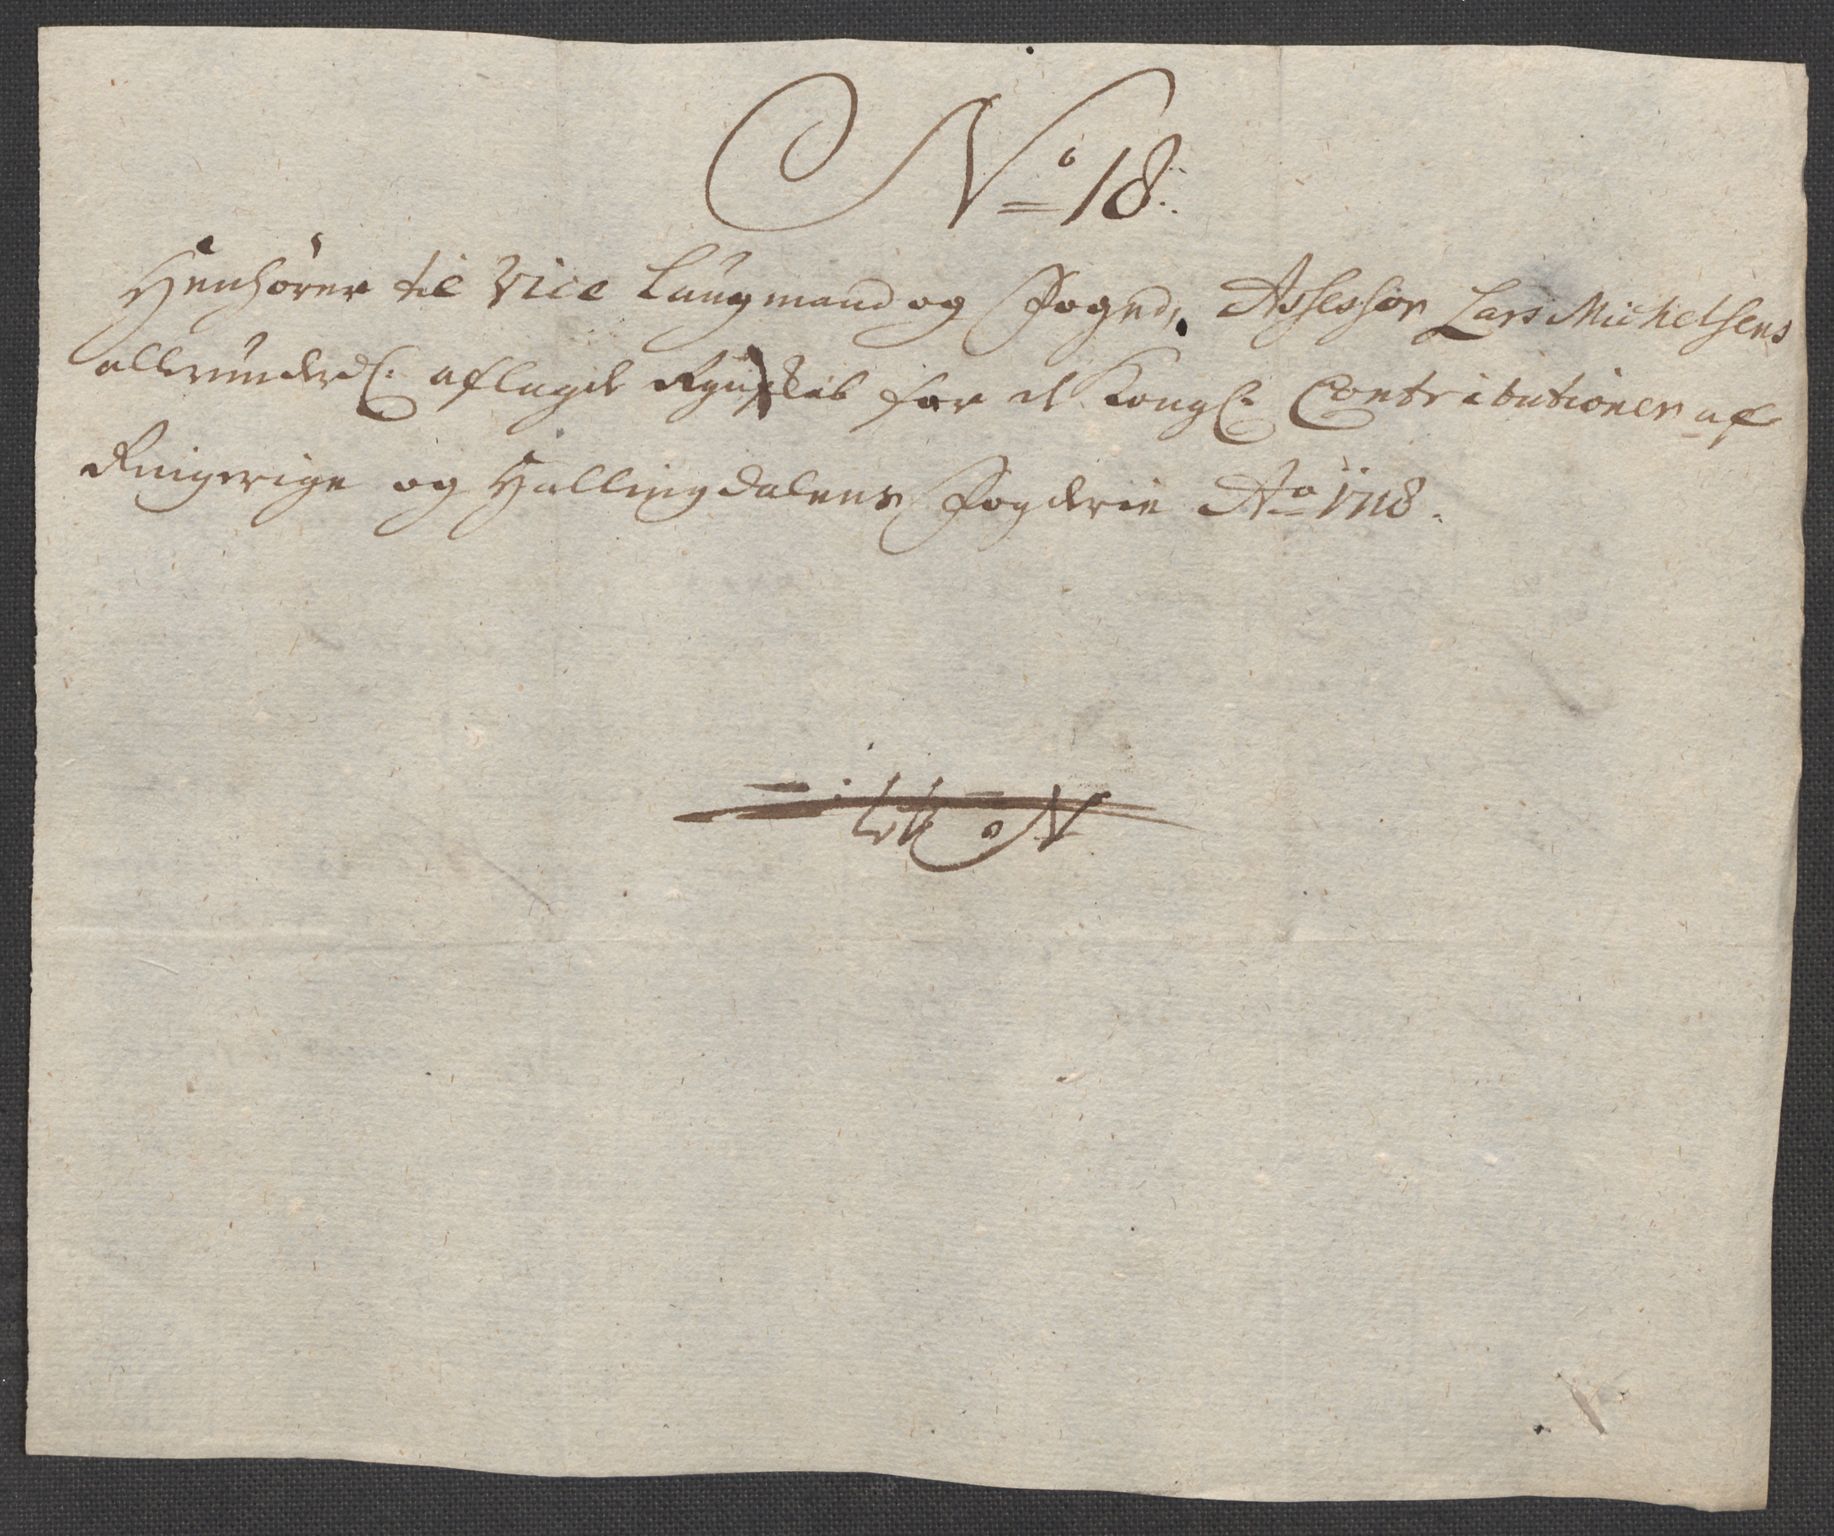 No 18.
Henhører til Vice Laugmand og Foged, Assessor Lars Michelsens
allerunderd: aflagde Regnskab for de Kongl: Contributioner af
Ringerige og Hallingdalens Fogderie Ao 1718.